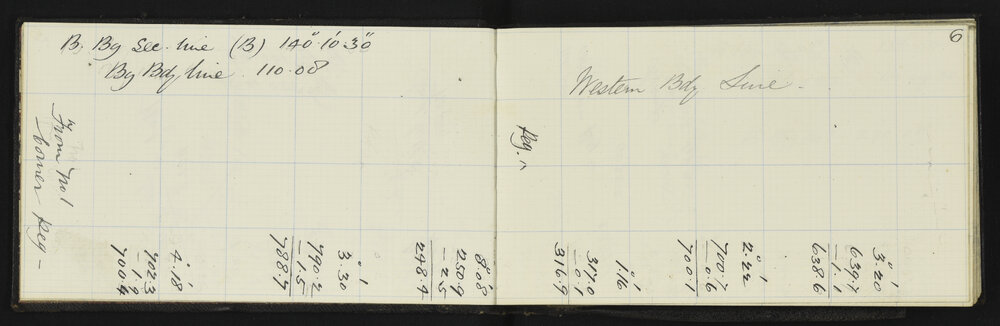 6
B. Bg Sec. line (B) 140° 10' 30"
Bg Bdy line. 110.08
Western Bdy Line -
From No 1
corner peg -
4.18
702.3
- 1.9
700.4
3.30
790.2
- 1.5
788.7
8.08
250.9
- 2.5
248.4
Peg.
1.16
317.0
- 0.1
316.9
2.22
700.7
- 0.6
700.1
3.20
639.7
- 1.1
638.6